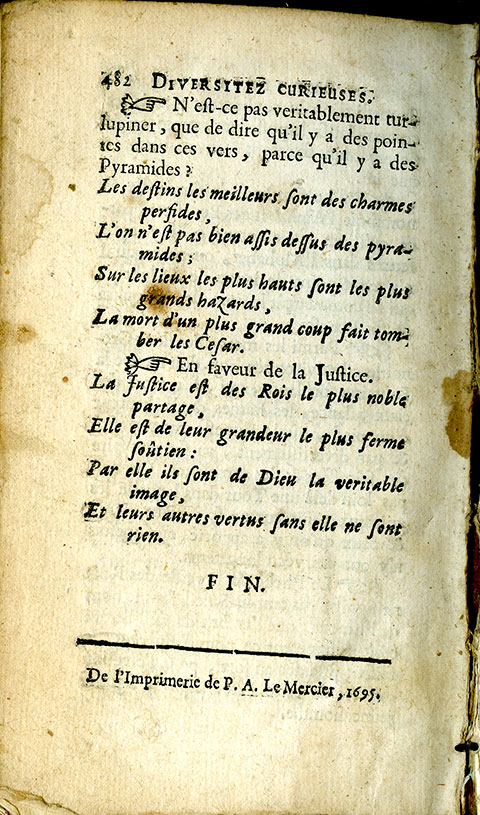 482 DIVERSITEZ CURIEUSES.
☞ N'est-ce pas veritablement tur-
lupiner, que de dire qu'il y a des poin-
tes dans ces vers, parce qu'il y a des
Pyramides ?
Les destins les meilleurs sont des charmes
perfides,
L'on n'est pas bien assis dessus des pyra-
mides ;
Sur les lieux les plus hauts sont les plus
grands hazards,
La mort d'un plus grand coup fait tom-
ber les Cesar.
☞ En faveur de la Justice.
La Justice est des Rois le plus noble
partage,
Elle est de leur grandeur le plus ferme
soûtien :
Par elle ils sont de Dieu la veritable
image,
Et leurs autres vertus sans elle ne sont
rien.
FIN.
De l'Imprimerie de P. A. Le Mercier, 1695.